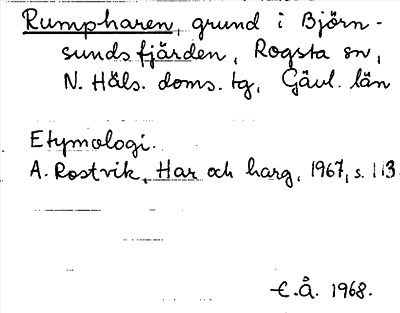 Rumpharen, grund i Björn-
sundsfjärden, Rogsta sn,
N. Häls. doms. tg, Gävl. län
Etymologi.
A. Rostvik, Har och harg, 1967, s. 113.
E.Å. 1968.